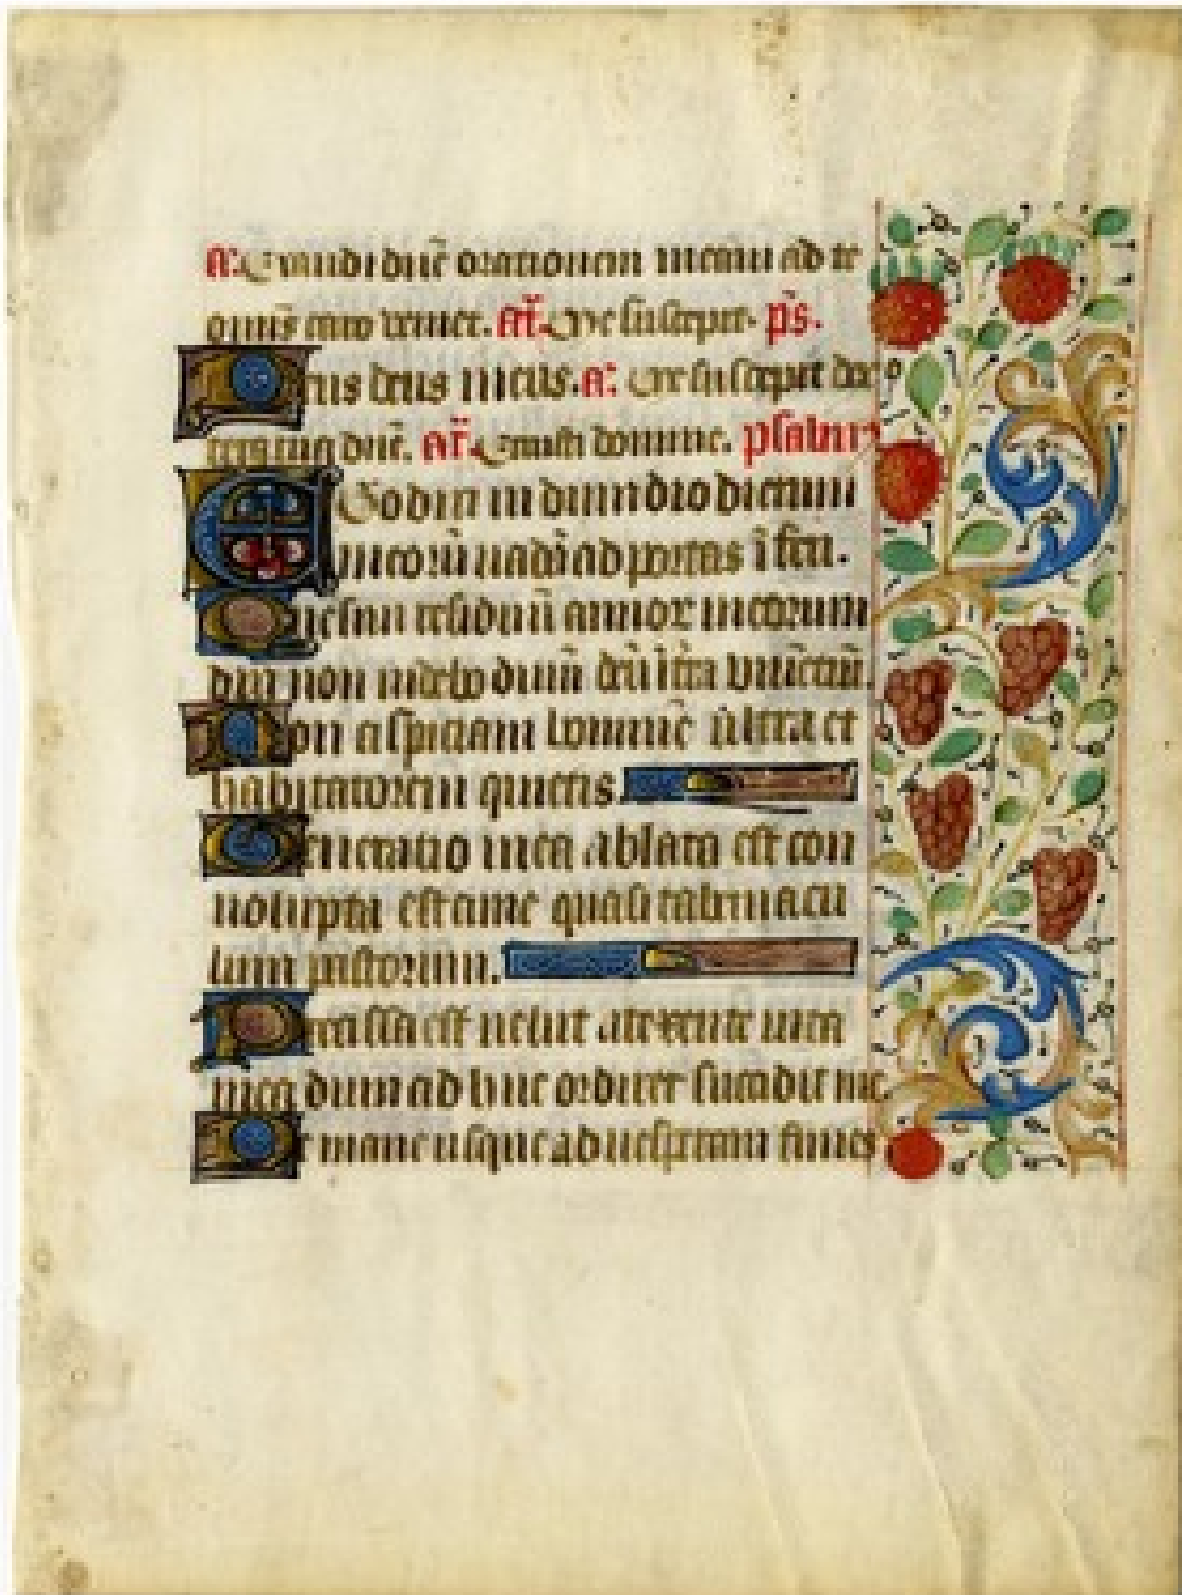 a. Exaudi dñe orationem meam ad te
omnis caro veniet. añ. Me suscepit. ps.
Deus deus meus. a. Me suscepit dex
tera tua dñe. añ. Eruisti domine. psalm
Ego dixi in dimidio dierum
meorũ uadã ad portas ĩferi.
Quesiui residuũ annoꝝ meorum
dixi non uidebo dñm deũ ĩ tr̃a viuẽtiũ.
Non aspiciam hominẽ ultra et
habitatorem quietis.
Generatio mea ablata est con
uoluta est a me quasi tabernacu
lum pastorum.
Precissa est uelut a texente uita
mea dum ad huc ordirer succidit me.
De mane usque ad uesperam finies